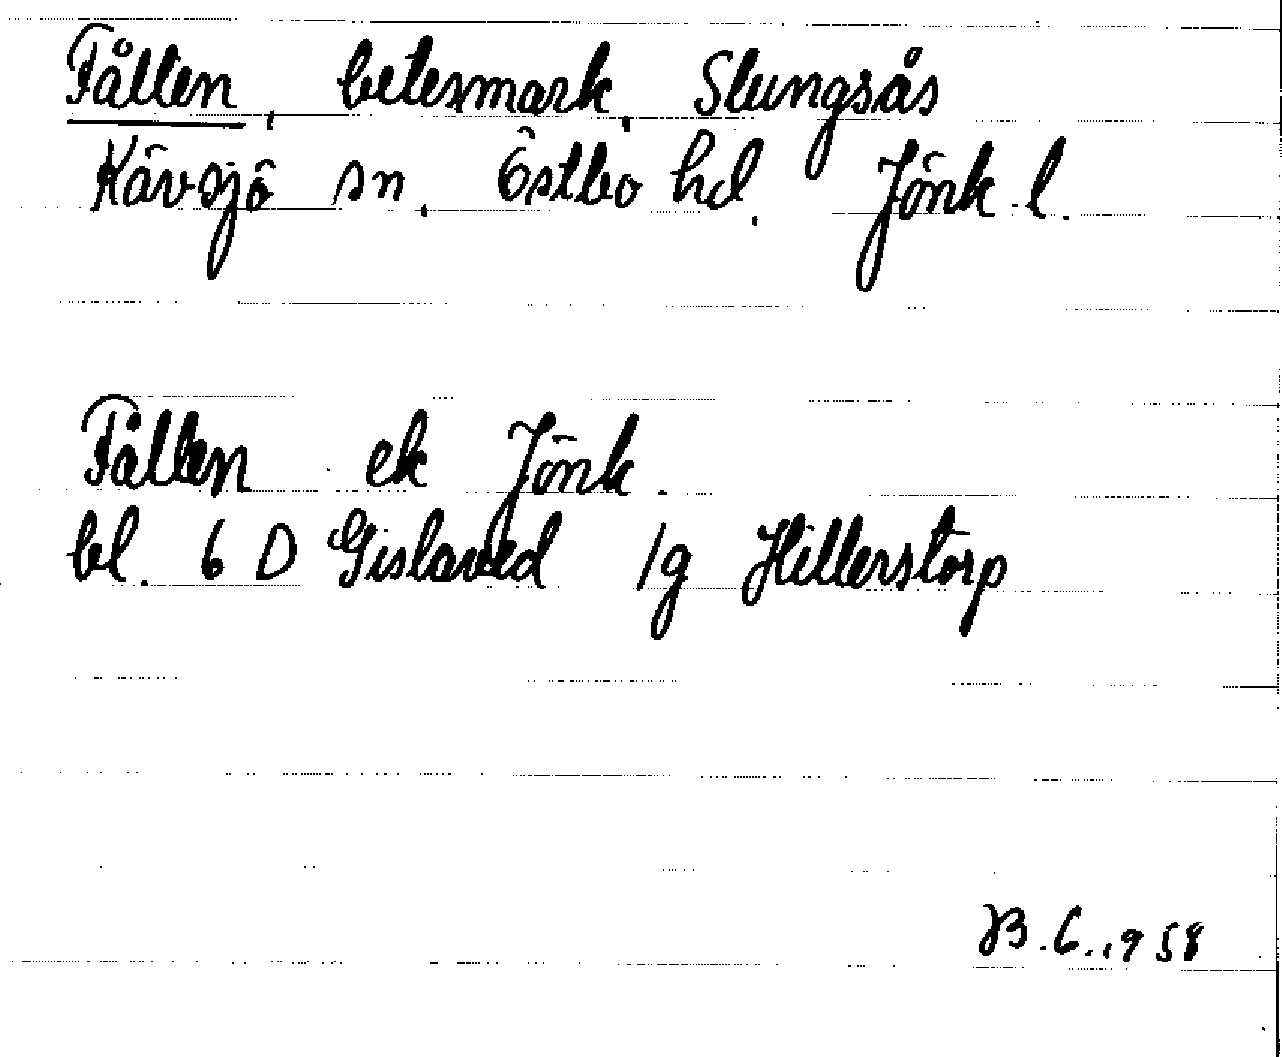 Fållen, betesmark, Slungsås
Kävsjö sn, Östbo hd, Jönk. l.
Fållen ek Jönk.
bl. 6 D Gislaved 1g Hillerstorp
B.G. 1958